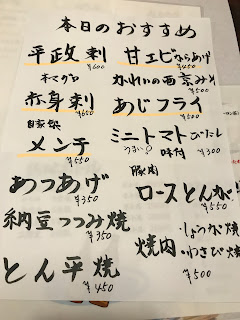 本日のおすすめ
平政刺
¥600
本マグロ
赤身刺
¥650
自家製
メンチ
¥550
あつあげ
¥350
納豆つつみ焼
¥350
とん平焼
¥450
甘エビから揚げ
¥450
かれいの西京みそ
¥500
あじフライ
¥500
ミニトマトひたし
うまい!
味付
¥300
豚肉
ロースとんかつ
¥550
焼肉
・しょうが焼
・わさび焼
¥500